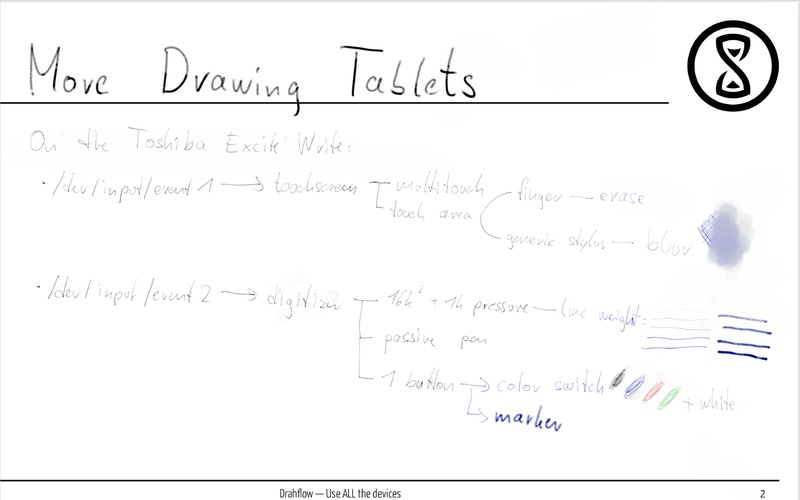 More Drawing Tablets
On the Toshiba Excite Write:
· /dev/input/event 1 → touchscreen
multitouch
touch area
finger — erase
generic stylus — blur
· /dev/input/event 2 → digitizer
16k² + 1k pressure — line weight:
passive pen
1 button → color switch + white
→ marker
Drahflow — Use ALL the devices 2